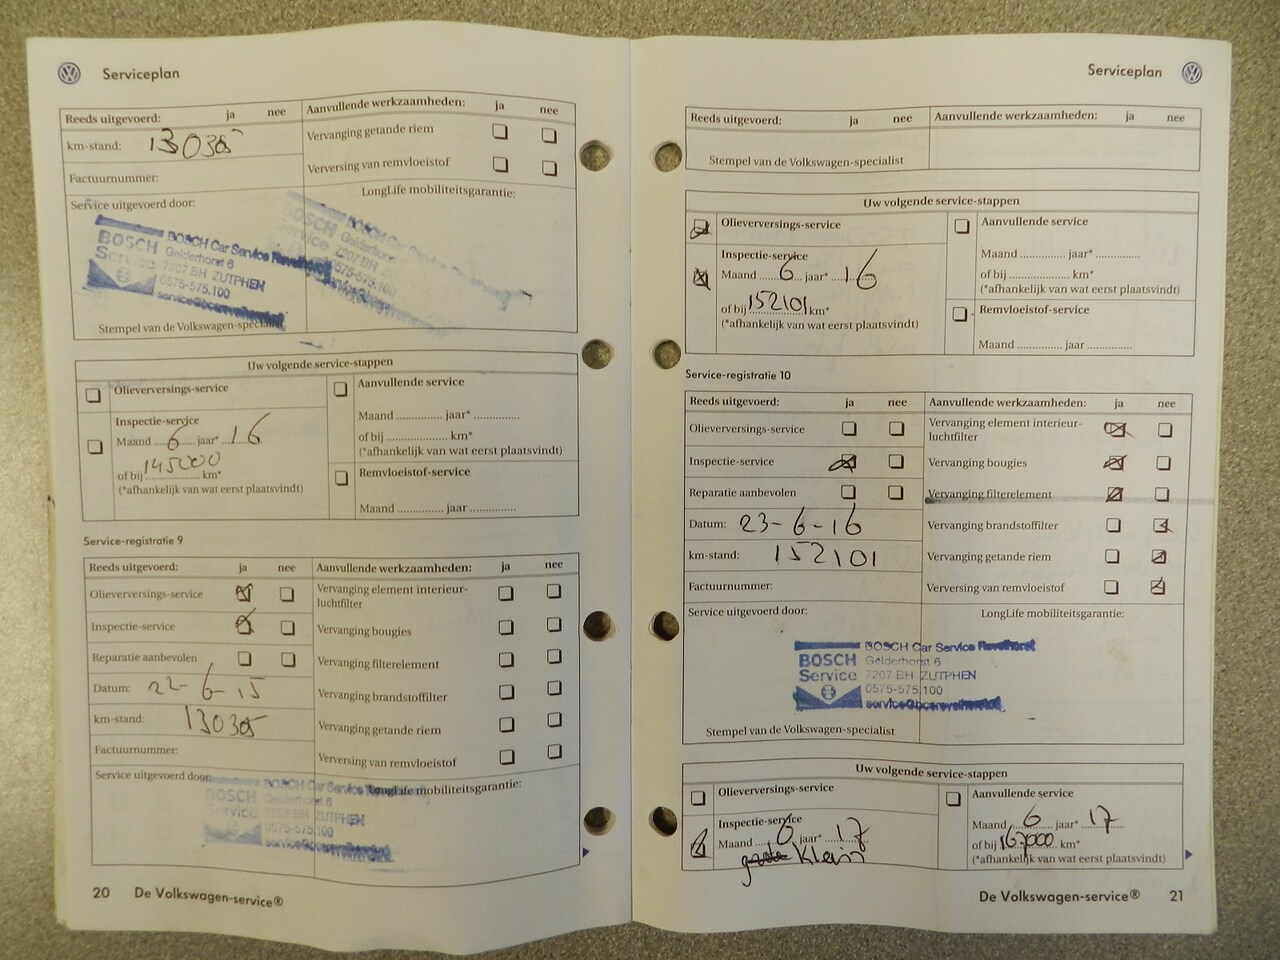 Serviceplan
Reeds uitgevoerd: ja nee
km-stand: 130385
Factuurnummer:
Service uitgevoerd door:
BOSCH Service
BOSCH Car Service
Gelderhorst 6
7207 BH ZUTPHEN
0575-575.100
Stempel van de Volkswagen-specialist
Aanvullende werkzaamheden: ja nee
Vervanging getande riem
Verversing van remvloeistof
LongLife mobiliteitsgarantie:
Uw volgende service-stappen
Olieverversings-service
Inspectie-service
Maand 6 jaar* 16
of bij 145000 km*
(*afhankelijk van wat eerst plaatsvindt)
Aanvullende service
Maand ............. jaar* .............
of bij .................. km*
(*afhankelijk van wat eerst plaatsvindt)
Remvloeistof-service
Maand ............. jaar .............
Service-registratie 9
Reeds uitgevoerd: ja nee
Olieverversings-service
Inspectie-service
Reparatie aanbevolen
Datum: 22-6-15
km-stand: 130385
Factuurnummer:
Service uitgevoerd door:
BOSCH Service
BOSCH Car Service
Gelderhorst 6
7207 BH ZUTPHEN
0575-575.100
Aanvullende werkzaamheden: ja nee
Vervanging element interieur-
luchtfilter
Vervanging bougies
Vervanging filterelement
Vervanging brandstoffilter
Vervanging getande riem
Verversing van remvloeistof
LongLife mobiliteitsgarantie:
20 De Volkswagen-service®
Serviceplan
Reeds uitgevoerd: ja nee
Stempel van de Volkswagen-specialist
Aanvullende werkzaamheden: ja nee
Uw volgende service-stappen
Olieverversings-service
Inspectie-service
Maand 6 jaar* 16
of bij 152101 km*
(*afhankelijk van wat eerst plaatsvindt)
Aanvullende service
Maand ............. jaar* .............
of bij .................. km*
(*afhankelijk van wat eerst plaatsvindt)
Remvloeistof-service
Maand ............. jaar .............
Service-registratie 10
Reeds uitgevoerd: ja nee
Olieverversings-service
Inspectie-service
Reparatie aanbevolen
Datum: 23-6-16
km-stand: 152101
Factuurnummer:
Service uitgevoerd door:
BOSCH Service
BOSCH Car Service
Gelderhorst 6
7207 BH ZUTPHEN
0575-575.100
Stempel van de Volkswagen-specialist
Aanvullende werkzaamheden: ja nee
Vervanging element interieur-
luchtfilter
Vervanging bougies
Vervanging filterelement
Vervanging brandstoffilter
Vervanging getande riem
Verversing van remvloeistof
LongLife mobiliteitsgarantie:
Uw volgende service-stappen
Olieverversings-service
Inspectie-service
Maand 6 jaar* 17
Klein
Aanvullende service
Maand 6 jaar* 17
of bij 167000 km*
(*afhankelijk van wat eerst plaatsvindt)
De Volkswagen-service® 21